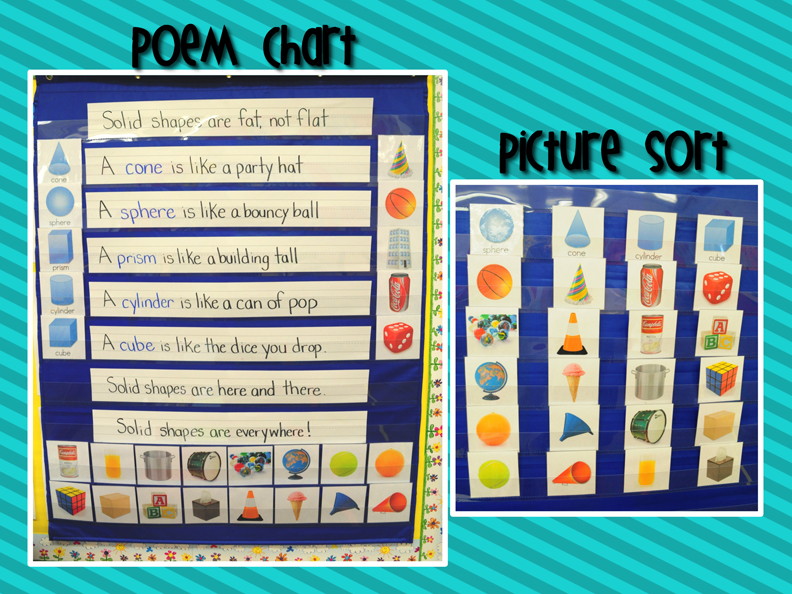 Poem Chart
Solid shapes are fat, not flat
cone
A cone is like a party hat
sphere
A sphere is like a bouncy ball
prism
A prism is like a building tall
cylinder
A cylinder is like a can of pop
Coca-Cola
cube
A cube is like the dice you drop.
Solid shapes are here and there.
Solid shapes are everywhere!
Campbell's
A
B C
Picture Sort
sphere
cone
cylinder
cube
Coca-Cola
Campbell's
A
B C